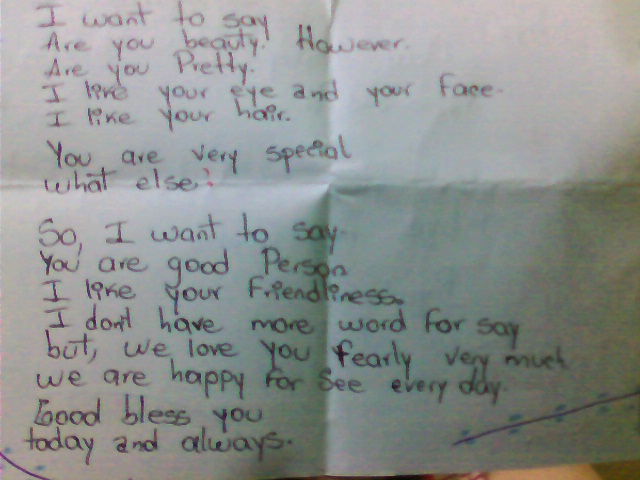 I want to say
Are you beauty. However.
Are you Pretty.
I like your eye and your face.
I like your hair.
You are very special
what else?
So, I want to say.
You are good Person
I like your Friendliness.
I don't have more word for say
but, we love you fearly very much
we are happy for see every day.
Good bless you
today and always.